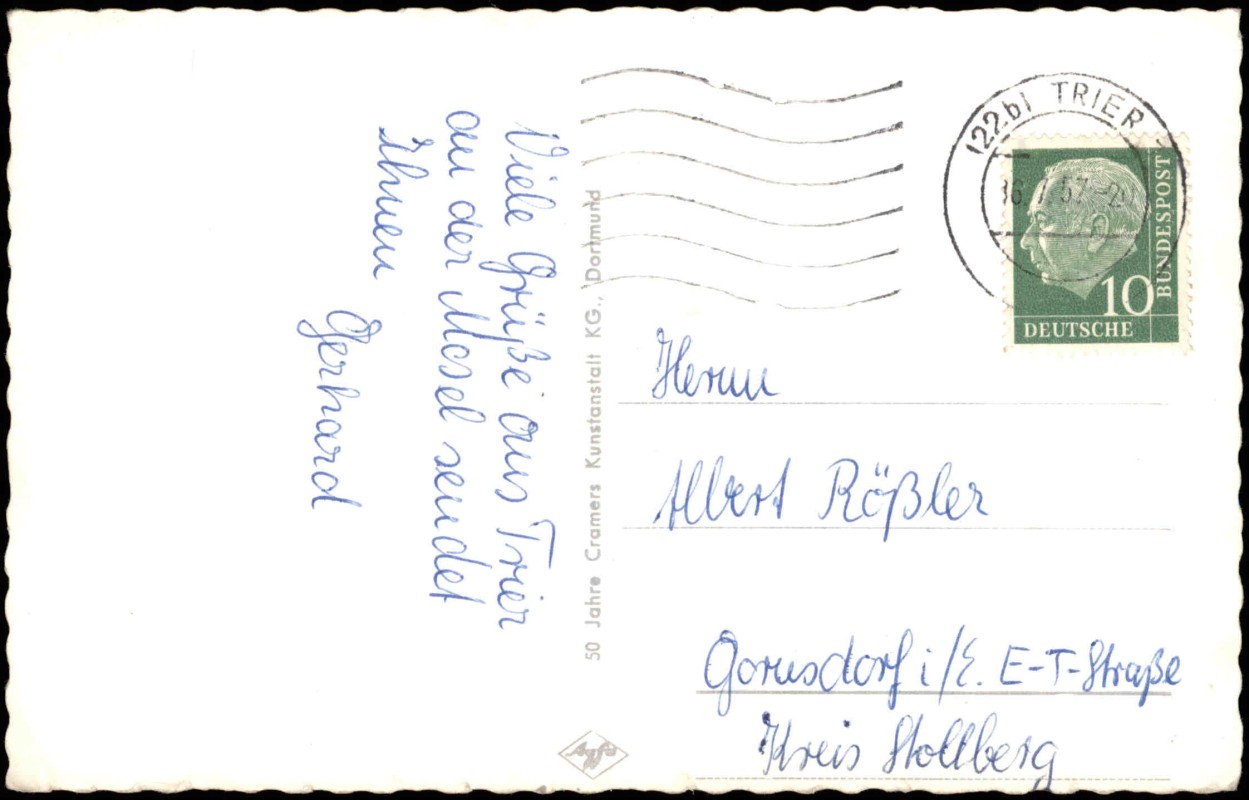 Viele Grüße aus Trier
an der Mosel sendet
Ihnen
Gerhard
50 Jahre Cramers Kunstanstalt KG., Dortmund
Agfa
(22b) TRIER
57
BUNDESPOST
10
DEUTSCHE
Herrn
Albert Rößler
Gornsdorf i/E. E-T-Straße
Kreis Stollberg